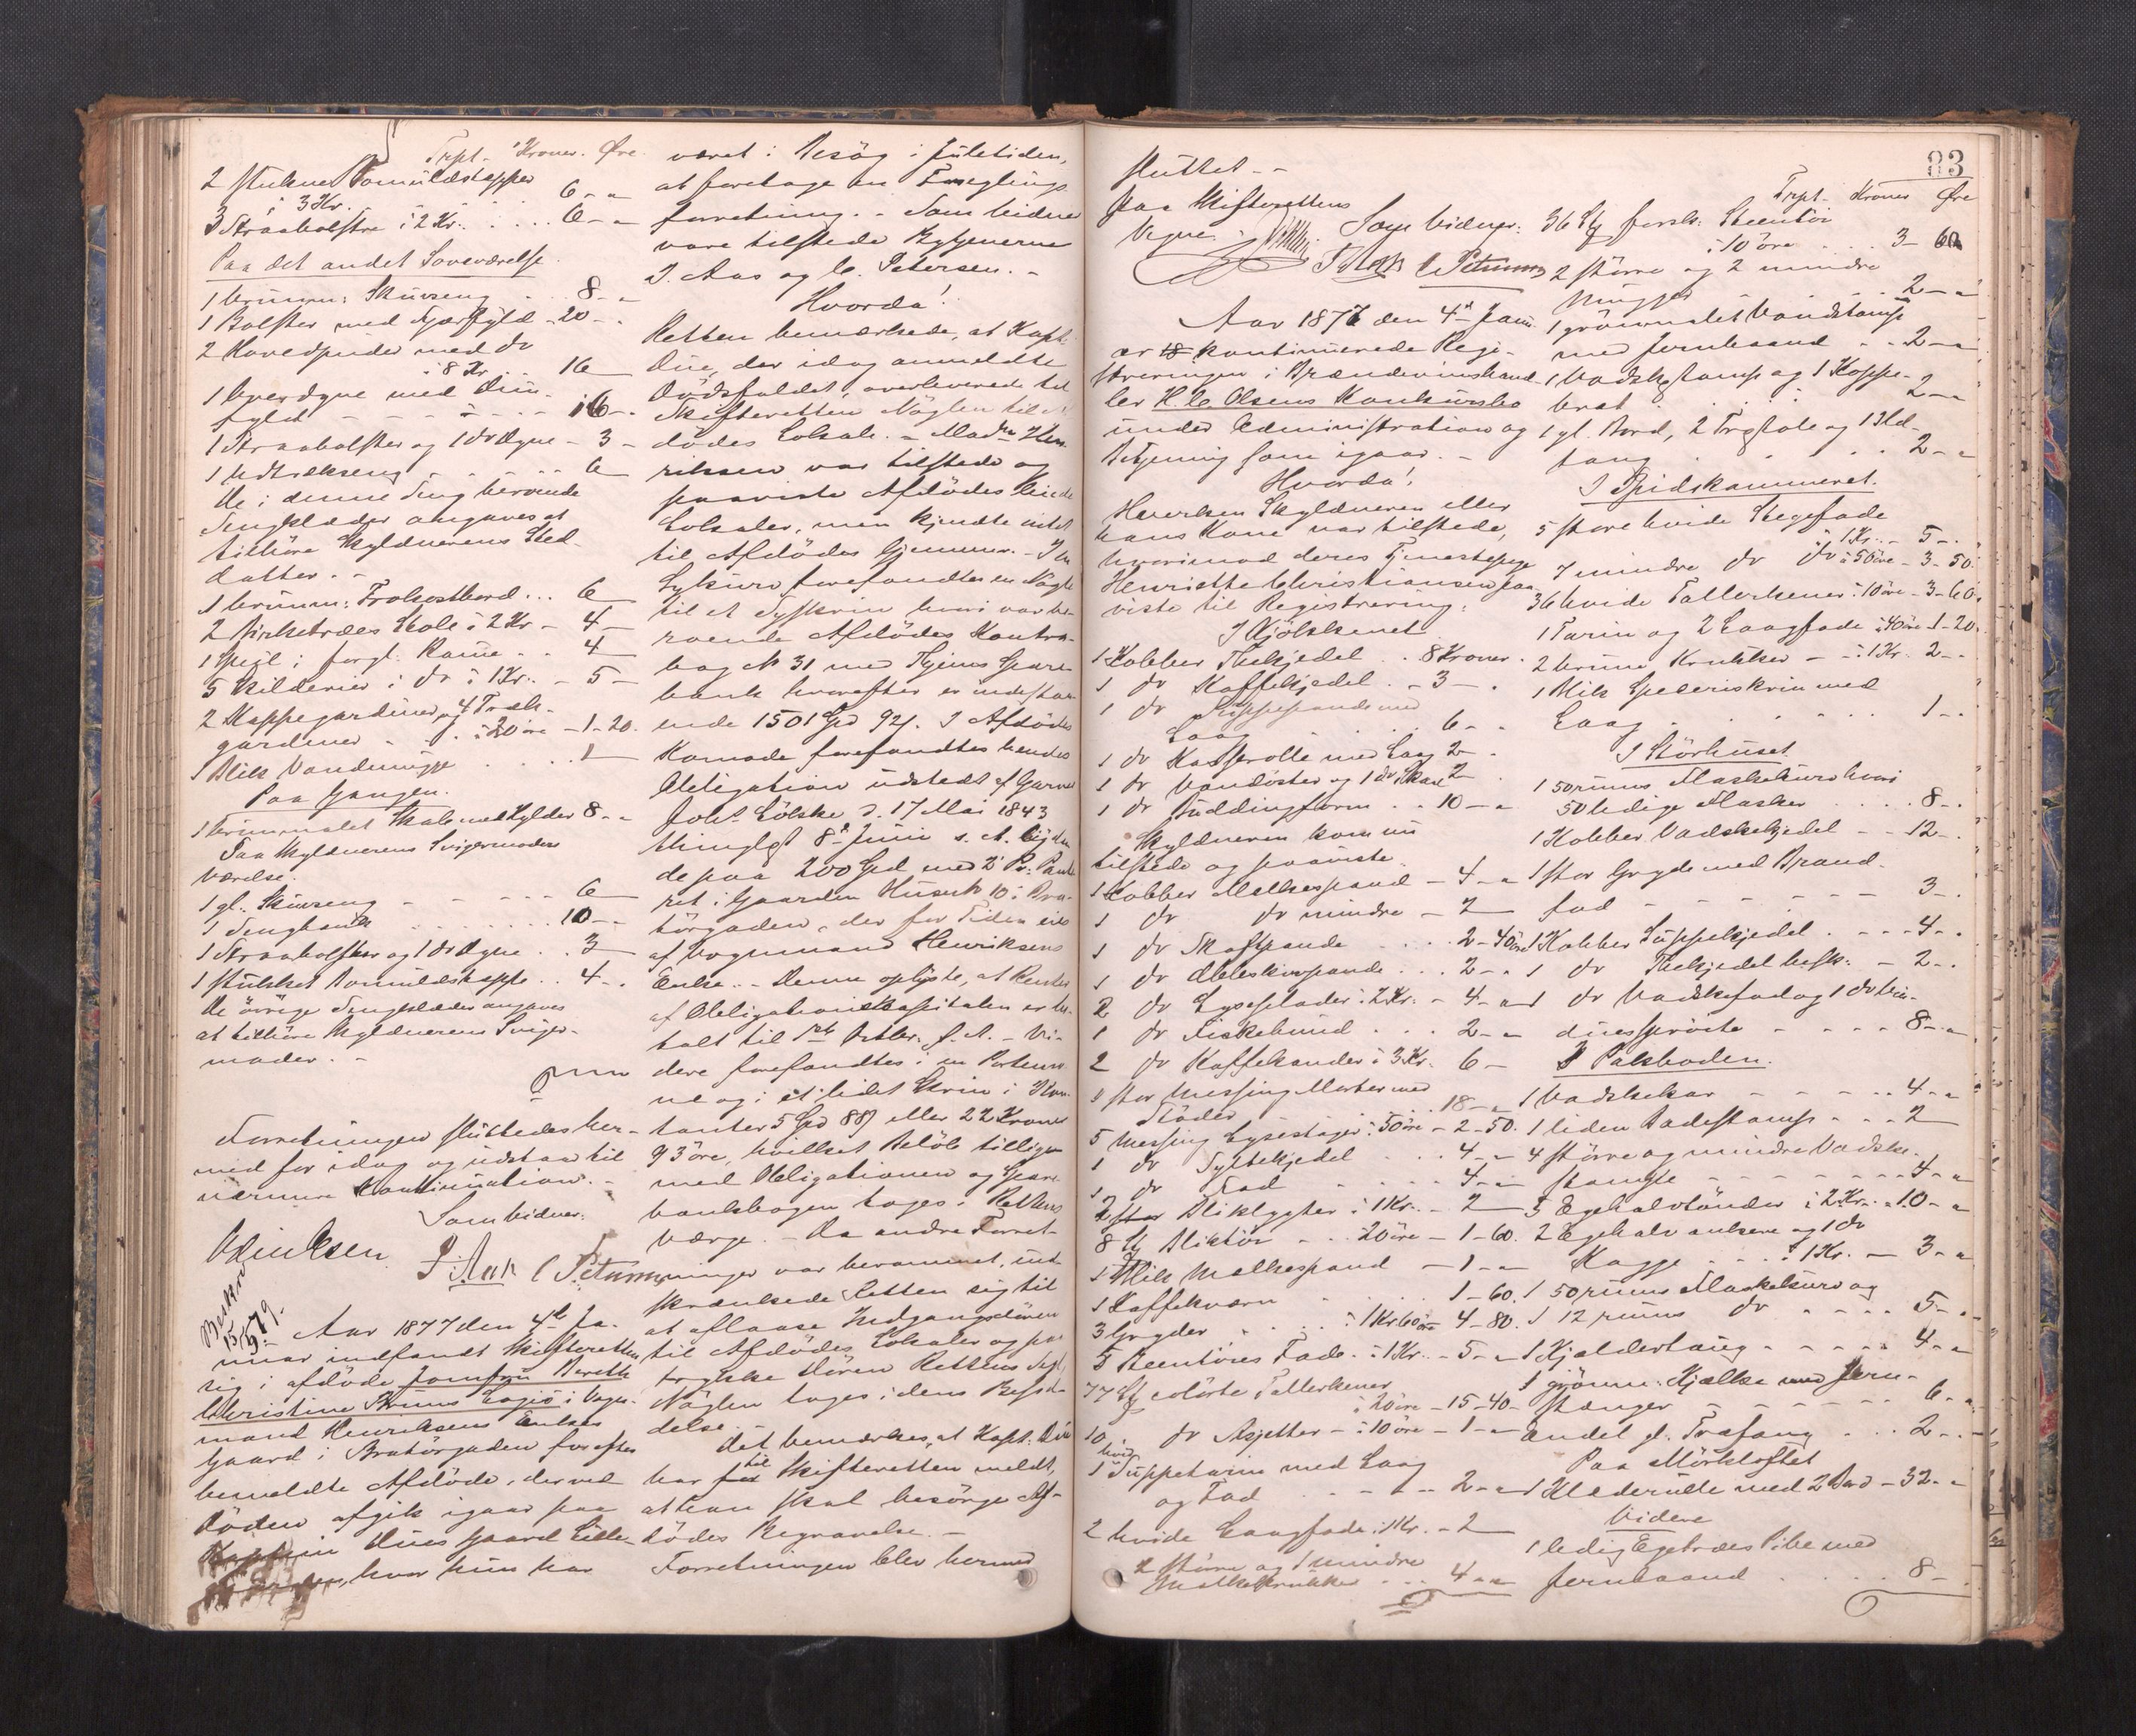 Trpt. Kroner. Øre.
2 stukne Bomuldstepper
à 3 Kr. 6 - "
3 Straabolstre à 2 Kr. . . . 6 - "
Paa det andet Soveværelse.
1 brunm: Skuvseng . . 8 - "
1 Bolster med Fjærfyld - 20 - .
2 Hovedpuder med do
à 8 Kr. . 16
1 Overdyne med Dun-
fyld - - - - - 16 - .
1 Straabolster og 1 do Dyne - 3 -
1 Udtrækseng - - - - - 6
De i denne Seng værende
Sengklæder angaves at
tilhöre Skyldnerens Sted-
datter. -
1 brunm: Frokostbord . . . 6
2 Birketræes Stole à 2 Kr - 4 -
1 Speil i forgl. Ramme - . 4
5 Skilderier i do à 1 Kr. . - 5 -
2 Kappegardiner og 4 Træk-
gardiner - - . à 20 öre - 1 - 20.
1 Blik Vandmugge . . . . 1
Paa Gangen.
1 brunmalet Skab med Hylder 8 - "
Paa Skyldnerens Svigermoders
Værelse.
1 gl. Skuvseng - - - - - 6
1 Sengbænk . . . . . . . 10 - -
1 Straabolster og 1 do Dyne . . 3
1 stukket Bomuldsteppe . . 4 - .
De övrige Sengklæder angaves
at tilhöre Skyldnerens Sviger-
moder. -
Forretningen sluttedes her-
med for idag og udstaar til
nærmere Kontinuation. -
Som Vidner:
P. Aas C Petersen
Beskr
15/5 79.
Aar 1877 den 4de Ja-
nuar indfandt Skifteretten
sig i afdöde Jomfru Bereth
Christine Bruns Logis i Vogn-
mand Henriksens Enkes
Gaard i Bratörgaden for efter
bemeldte Afdöde, der ved
Döden afgik igaar paa
Kaptein Dues Gaard Lille-
hvor hun har
været i Besög i Juletiden,
at foretage en Forseglings-
forretning. - Som Vidner
vare tilstede Bytjenerne
P. Aas og C. Petersen. -
Hvorda!
Retten bemærkede, at Kapt.
Due, der idag anmeldte
Dödsfaldet, overleverede til
Skifteretten Nöglen til Af-
dödes Lokale. - Madm Hen-
riksen var tilstede og
paaviste Afdödes leiede
Lokaler, men kjendte intet
til Afdödes Gjemmer. - I en
Sykurv forefandtes en Nögle
til et Syskrin hvori var be-
roende Afdödes Kontra-
bog No 31 med Thjems Spare-
bank hvorefter er indestaa-
ende 1501 Spd 92 ß. I Afdödes
Komode forefandtes hendes
Obligation udstedt af Garver
Joh. Lölske d. 17 Mai 1843
thinglæst 8de Juni s. A. lyden-
de paa 200 Spd med 2' Pr. Pante-
ret i Gaarden Husenr 10 i Bra-
törgaden, der for Tiden eies
af Vognmand Henriksens
Enke. - Denne oplyste, at Renter
af Obligationskapitalen er be-
talt til 1ste Oktbr. f. A. - Vi-
dere forefandtes i en Portemon-
næ og i et lidet Skrin i Kon-
tanter 5 Spd 88 ß eller 22 Kroner
93 öre, hvilket Belöb tilligemed
med Obligationen og Spare-
banksbogen toges i Rettens
Værge. - Da andre Forret-
ninger var berammet, ind-
skrænkede Retten sig til
at aflaase Indgangsdören
til Afdödes Lokaler og paa-
trykke Dören Rettens Segl,
Nöglen toges i dens Besid-
delse. -
Det bemærkes, at Kapt. Due
har til Skifteretten meldt,
at han skal besörge Af-
dödes Begravelse. -
Forretningen blev hermed
83
sluttet - -
Paa Skifterettens
Vegne. Som Vidner:
P. Aas C Petersen
Aar 1877 den 4de Janu-
ar kontinuerede Regi-
streringen i Brændevinshand-
ler H. C. Olsens Konkursbo
under Administration og
Betjening som igaar. -
Hvorda!
Hverken Skyldneren eller
hans Kone var tilstede,
hvorimod deres Tjenestepige
Henriette Christiansen paa-
viste til Registrering:
I Kjökkenet
1 Kobber Thekjedel . . 8 Kroner.
1 do Kaffekjedel . - 3 - .
1 do Suppepande med
Laag . . . . . 6 - .
1 do Kasserolle med Laag 2 - .
1 do Vandöster og 1 do Skaal 2
1 do Puddingform . . 10 - "
Skyldneren kom nu
tilstede og paaviste.
1 Kobber Melkespand - 4 - "
1 do do mindre - 2
1 do Skaftpande . . . . 2 - 40 öre
1 do Ableskivepande . . . 2 - "
2 do Lyseplader à 2 Kr. - 4 - "
1 do Fiskebund . . . 2 - "
2 do Kaffekander à 3 Kr. 6 -
1 stor Messing Morter med
Stöder . . . . . 18 - "
5 Messing Lysestager à 50 öre - 2 - 50.
1 do Syltekjedel . . . 4 - "
1 do Fad . . . . . 4 - "
2 Bliklygter à 1 Kr. . - 2
8 St Bliktöi . . . 20 öre - 1 - 60.
1 Blik Melkespand - 1 - "
1 Kaffekværn . . . 1 - 60.
3 Gryder . . . à 1 Kr 60 öre 4 - 80.
5 Steentöies Fade . à 1 Kr. - 5 - "
77 St Tallerkener
à 20 öre - 15 - 40 -
10 do Asjetter - à 10 öre - 1 - "
1 hvid Suppeterin med Laag
og Fad . . . . . 2 - "
2 hvide Laagfade à 1 Kr. - 2
2 större og 1 mindre
Melkekrukker . . . 4 - "
Trpt. Kroner Øre
36 St forsk: Steentöi
à 10 öre . . . 3 - 60
2 större og 2 mindre
Mugger . . . . 2 - "
1 grönmalet Vandstamp
med Jernbaand . . 2 - "
1 Vadskestamp og 1 Koppe-
bræt . . . . . 2 - "
1 gl. Bord, 2 Træstole og 1 Ild-
tang . . . . . . 2 - "
I Spidskammeret.
5 store hvide Stegefade
à 1 Kr. . - 5 - .
7 mindre do do à 50 öre - 3 - 50.
36 hvide Tallerkener à 10 öre - 3 - 60.
1 Tarin og 2 Laagfade à 40 öre 1 - 20.
2 brune Krukker - à 1 Kr. 2 - .
1 Blik Spederiskrin med
Laag . . . . . . 1 - .
I Störhuset
1 50 rums Flaskekurv hvori
50 ledige Flasker . . . . 8 - .
1 Kobber Vadskekjedel - - 12 - .
1 stor Gryde med Brand-
fad - - - - - - 3 - .
1 Kobber Suppekjedel . - - - 4 - .
1 do Thekjedel besk: - 2 - .
1 do Vadskefad og 1 do Vin-
duesspröite - - - - 8 - "
I Pakboden.
1 Vadskekar - - - - . 4 - "
1 liden Badestamp - - . 2
4 större og mindre Vadske-
stampe - - - - - - 4 - "
5 Egehalvtönder à 2 Kr. - 10 - "
2 Egehalv ankere og 1 do
Kagge . . . . à 1 Kr. - 3 - "
1 50 rums Flaskekurv og
1 12 rums do . . . . . 5 - "
1 Kjeldertaug - . . . . 4 - "
1 grönm: Kjælke med Jern-
stænger - - - - - - 6 - "
Andel gl. Træfang . . . 2 - .
Paa Mörkloftet
1 Klederulle med 2 Bord - 32 - "
Videre
1 ledig Egetræes Pibe med
Jernbaand . . . . . 8 - .